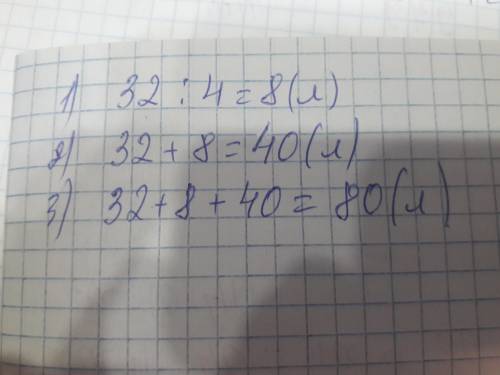 1) 32 : 4 = 8 (л)
2) 32 + 8 = 40 (л)
3) 32 + 8 + 40 = 80 (л)